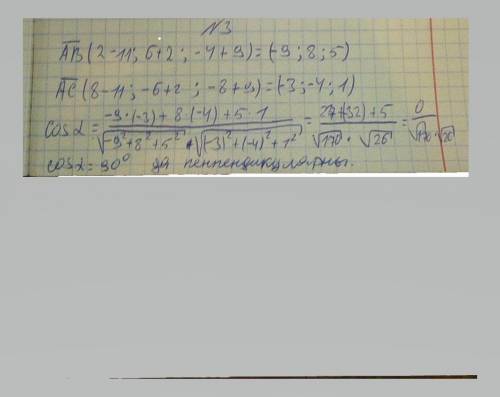 №3
AB(2-11; 6+2; -4+9)=(-9; 8; 5)
AC(8-11; -6+2; -8+9)=(-3; -4; 1)
cosα = (-9·(-3)+8·(-4)+5·1)/(√(-9²+8²+5²)·√((-3)²+(-4)²+1²)) = (27+(-32)+5)/(√170·√26) = 0/(√170·√26)
cosα=90° да пенпендикулярны.